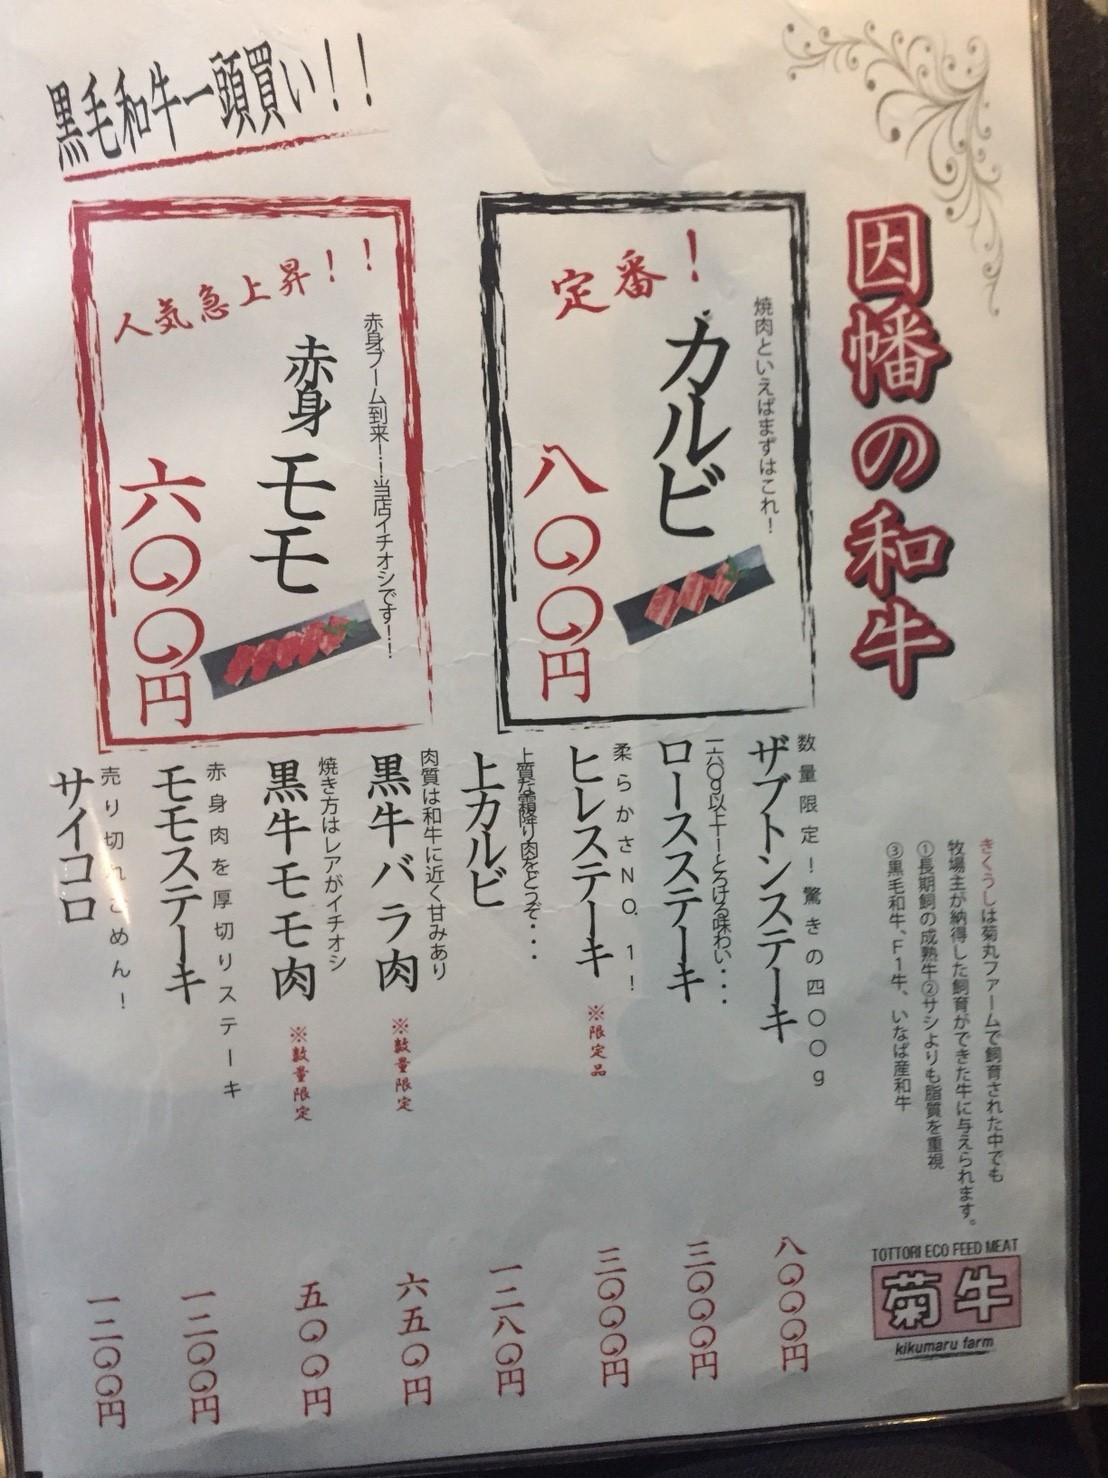 因幡の和牛
黒毛和牛一頭買い！！
焼肉といえばまずはこれ！
定番！
カルビ
八〇〇円
赤身ブーム到来！！当店イチオシです！！
人気急上昇！！
赤身モモ
六〇〇円
きくうしは菊丸ファームで飼育された中でも
牧場主が納得した飼育ができた牛に与えられます。
①長期飼の成熟牛②サシよりも脂質を重視
③黒毛和牛、F1牛、いなば産和牛
TOTTORI ECO FEED MEAT
菊牛
kikumaru farm
数量限定！驚きの四〇〇g
ザブトンステーキ
八〇〇〇円
一六〇g以上！とろける味わい・・・
ロースステーキ
三〇〇〇円
柔らかさNO.1！
ヒレステーキ
※限定品
三〇〇〇円
上質な霜降り肉をどうぞ・・・
上カルビ
一二八〇円
肉質は和牛に近く甘みあり
黒牛バラ肉
※数量限定
六五〇円
焼き方はレアがイチオシ
黒牛モモ肉
※数量限定
五〇〇円
赤身肉を厚切りステーキ
モモステーキ
一二〇〇円
売り切れごめん！
サイコロ
一二〇〇円